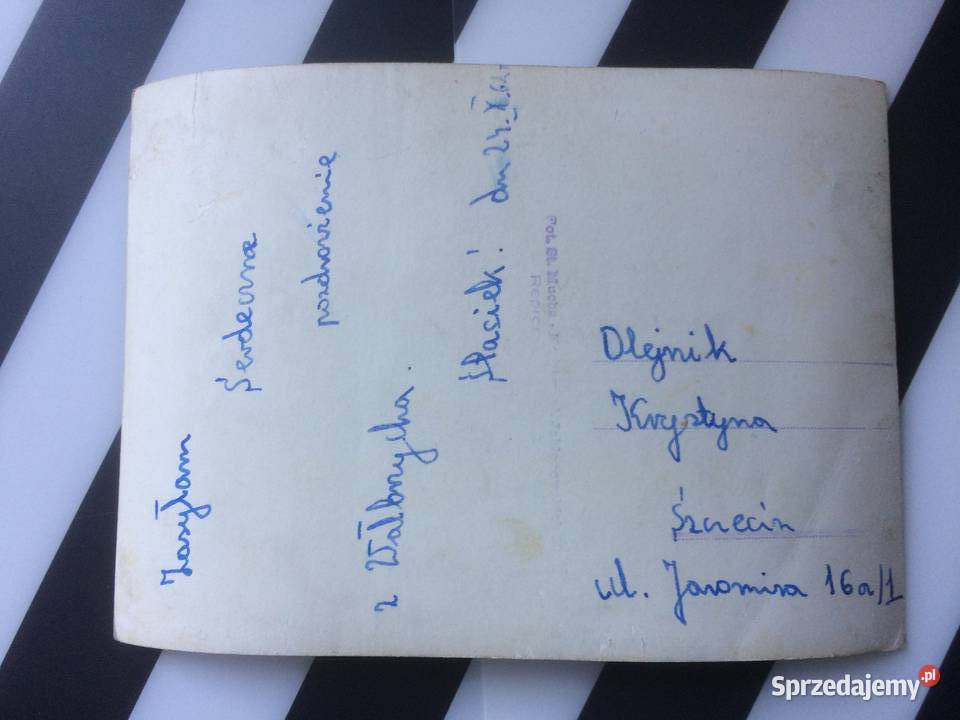 Zasyłam
Serdeczne
pozdrowienie
z Wałbrzycha.
Stasiek! dn 24.X.64
Fot. St.
Olejnik
Krystyna
Szczecin
ul. Jaromira 16a/1
Sprzedajemy.pl